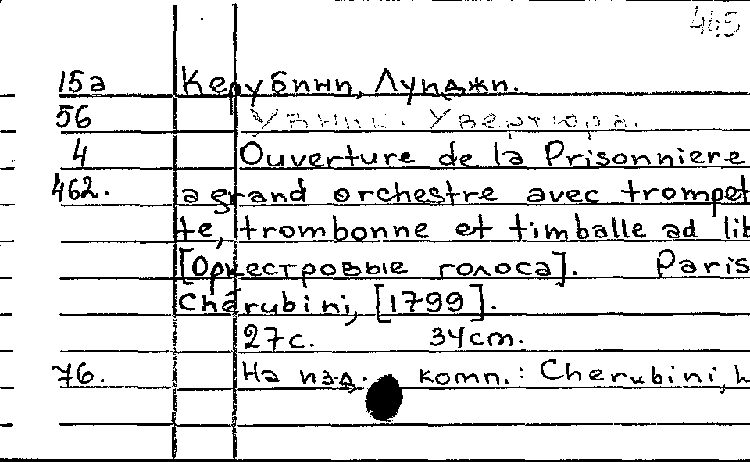 465
15а Керубини, Луиджи.
56 Узник. Увертюра.
4 Ouverture de la Prisonniere
462. a grand orchestre avec trompet
te, trombonne et timballe ad lib
[Оркестровые голоса]. Paris
Chérubini, [1799].
27с. 34cm.
76. На изд. комп.: Cherubini,